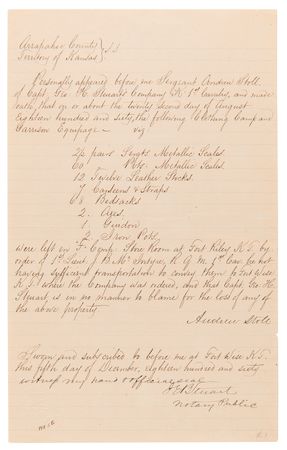 Arrapahoe County } S.S.
Territory of Kansas }
Personally appeared before me Sergeant Andrew Stoll
of Capt. Geo. H. Steuart Company K 1st Cavalry, and made
oath, that on or about the twenty second day of August
eighteen hundred and sixty, the following Clothing Camp and
Garrison Equipage – viz
pairs Sergts. Metallic Scales.
Pvts. Metallic Scales.
12 Leather Stocks.
7 Canteens & Straps
8 Bedsacks
2. Axes.
1 Guidon
2 Iron Pots,
were left in "F" Comp. Store Room at Fort Riley K.T. by
order of 1st Lieut J. B. McIntyre, R. Q. M. 1st Cav. he not
having sufficient transportation to convey them to Fort Wise
K.T. where the Company was ordered, and that Capt. Geo. H.
Steuart is in no manner to blame for the loss of any of
the above property
Andrew Stoll
Sworn and subscribed to before me at Fort Wise K.T.
this fifth day of December, eighteen hundred and sixty
witness my hand & official seal
Stuart
Notary Public